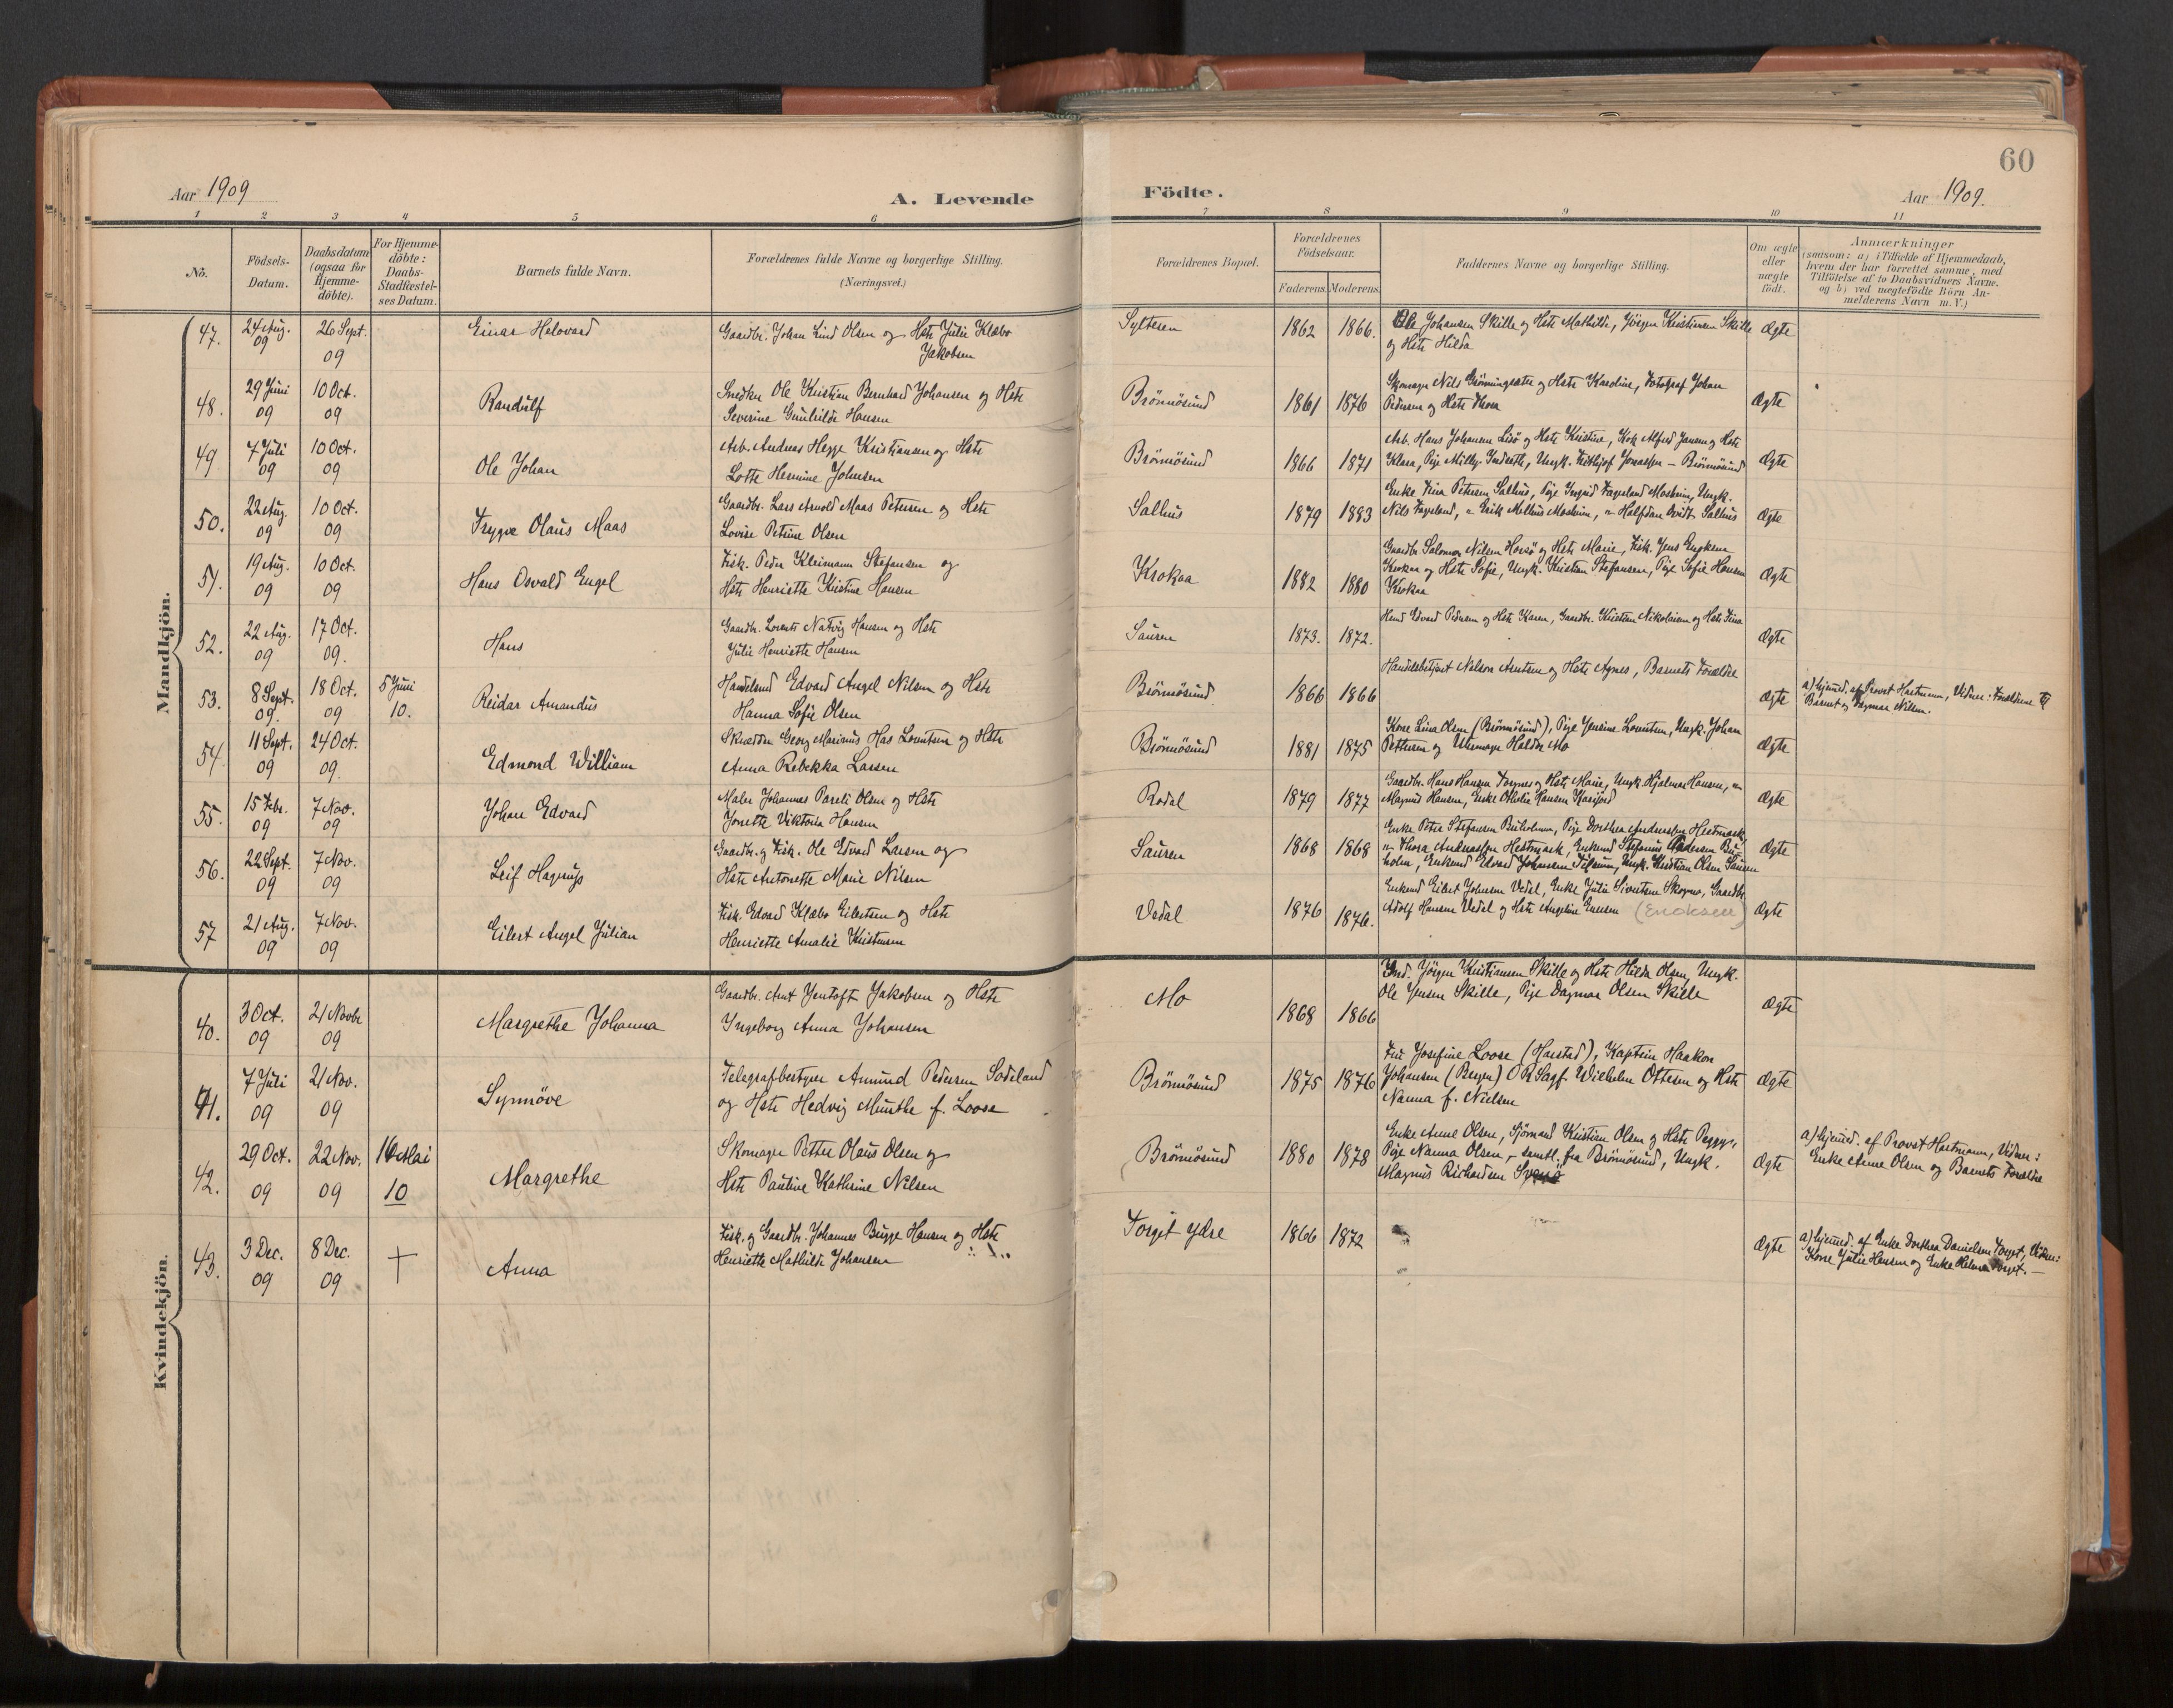 60
Aar 1909
A. Levende
Födte.
Aar 1909.
1 2 3 4 5 6 7 8 9 10 11
Nö.
Födsels-
Datum.
Daabsdatum
(ogsaa for
Hjemme-
döbte).
For Hjemme-
döbte:
Daabs-
Stadfæstel-
ses Datum.
Barnets fulde Navn.
Forældrenes fulde Navne og borgerlige Stilling.
(Næringsvei.)
Forældrenes Bopæl.
Forældrenes
Födselsaar.
Faderens. Moderens.
Faddernes Navne og borgerlige Stilling.
Om ægte
eller
uægte
födt.
Anmærkninger
(saasom: a) i Tilfælde af Hjemmedaab,
hvem der har forrettet samme, med
Tilföielse af to Daabsvidners Navne.
og b) ved uægtefödte Börn An-
melderens Navn m. V.)
Mandkjön.
47. 24 Aug. 09 26 Sept. 09 Einar Halovard
Gaardbr. Johan Lind Olsen og Hstr Julie Klæbo
Jakobsen
Sylteren 1862 1866.
Ole Johansen Skille og Hstr Mathilde, Jörgen Kristiansen Skille
og Hstr Hilda
Ægte
48. 29 Juni 09 10 Oct. 09 Randulf
Snedker Ole Kristian Bernhard Johansen og Hstr
Severine Gunhilde Hansen
Brönnösund 1861 1876
Skomager Nils Grönningsæter og Hstr Karoline, Fotograf Johan
Pedersen og Hstr Thora
Ægte
49 7 Juli 09 10 Oct. 09 Ole Johan
Arb. Andreas Hegge Kristiansen og Hstr
Lotte Hermine Johnsen
Brönnösund 1866 1871
Arb. Hans Johansen Lisö og Hstr Kristine, Kok Alfred Jansen og Hstr
Klara, Pige Milly Inderth, Ungk. Frithjof Jonassen – Brönnösund
Ægte
50. 22 Aug. 09 10 Oct. 09 Trygve Olaus Maas
Gaardbr. Lars Arnold Maas Petersen og Hstr
Lovise Petrine Olsen
Salhus 1879 1883
Enke Fina Petersen Salhus, Pige Ingrid Fageland Mosheim, Ungk.
Nils Fageland, " Erik Melhus Mosheim, " Halfdan Qvidt Salhus
Ægte
51. 19 Aug. 09 10 Oct. 09 Hans Osvald Engel
Fisk. Peder Kleimann Stefansen og
Hstr Henriette Kristine Hansen
Krokaa 1882 1880
Gaardbr Salomon Nilsen Horsö og Hstr Marie, Fisk. Jens Engksen
Krokaa og Hstr Sofie, Ungk. Kristian Stefansen, Pige Sofie Hansen
Krokaa
Ægte
52. 22 Aug. 09 17 Oct. 09. Hans
Gaardbr. Lorents Natvig Hansen og Hstr
Julie Henriette Hansen
Sauren 1873. 1872.
Hmd Edvard Pedersen og Hstr Karen, Gaardbr. Kristian Nikolaisen og Hstr Fina
Ægte
53. 8 Sept. 09. 18 Oct. 09 5 Juni 10. Reidar Amandus
Handelsmd Edvard Angel Nilsen og Hstr
Hanna Sofie Olsen
Brönnösund 1866 1866
Handelsbetjent Nelson Arntsen og Hstr Agnes, Barnets Forældre
Ægte
a) hjemd. af Provst Hartmann, Vidner: Forældrene til
Barnet og Dagmar Nilsen.
54. 11 Sept. 09 24 Oct. 09. Edmond William
Skrædder Georg Marinus Has Lorentsen og Hstr
Anna Rebekka Larsen
Brönnösund 1881 1875
Kone Lina Olsen (Brönnösund), Pige Jensine Lorentsen, Ungk. Johan
Pettersen og Uhrmager Haldor Mo
Ægte
55. 15 Febr. 09 7 Nov. 09 Johan Edvard
Maler Johannes Pareli Olsen og Hstr
Jonette Viktoria Hansen
Rodal 1879 1877
Gaardbr. Hans Hansen Torgnes og Hstr Marie, Ungk. Hjalmar Hansen, "
Magnus Hansen, Enke Othelie Hansen Karifjord
Ægte
56. 22 Sept. 09 7 Nov. 09 Leif Hagrup
Gaardbr. og Fisk. Ole Edvard Larsen og
Hstr Antonette Marie Nilsen
Sauren 1868 1868
Enke Petra Stefansen Buholmen, Pige Dorthea Andreassen Hestmark,
" Thora Andreassen Hestmark, Enkemd Stefanus Pedersen Bu-
holm, Enkemd Edvard Johansen Tilrem, Ungk. Kristian Olsen Sauren
Ægte
57 21 Aug. 09 7 Nov. 09 Eilert Angel Julian
Fisk. Edvard Klæbo Eilertsen og Hstr
Henriette Amalie Kristensen
Vedal 1876 1876.
Enkemd Eilert Johnsen Vedal, Enke Julie Sivertsen Skogmo, Gaardbr
Adolf Hansen Vedal og Hstr Angeline Enersen (Eriksen)
Ægte
Kvindekjön.
40. 3 Oct. 09 21 Novbr 09 Margrethe Johanna
Gaardbr. Arnt Jentoft Jakobsen og Hstr
Ingeborg Anna Johansen
Mo 1868 1866
Ind. Jörgen Kristiansen Skille og Hstr Hilda Olsen, Ungk.
Ole Jensen Skille, Pige Dagmar Olsen Skille
Ægte
41. 7 Juli 09 21 Nov. 09 Synnöve
Telegrafbestyrer Amund Pedersen Sodeland
og Hstr Hedvig Munthe f. Loose
Brönnösund 1875 1876
Fru Josefine Loose (Harstad), Kaptein Haakon
Johansen (Bergen) O R Sagf. Wielhelm Ottesen og Hstr
Nanna f. Nielsen
Ægte
42. 29 Oct. 09 22 Nov. 09 16 Mai 10 Margrethe
Skomager Petter Olaus Olsen og
Hstr Pauline Kathrine Nilsen
Brönnösund 1880 1878
Enke Anne Olsen, Sjömand Kristian Olsen og Hstr Peggy,
Pige Nanna Olsen, – samtl. fra Brönnösund, Ungk.
Magnus Rickardsen
Ægte
a) hjemd. af Provst Hartmann, Vidner:
Enke Anne Olsen og Barnets Forældre
43. 3 Dec. 09 8 Dec. 09 † Anna
Fisk. og Gaardbr. Johannes Bugge Hansen og Hstr
Henriette Mathilde Johansen
Torget ydre 1866 1872
Ægte
a) hjemd. af Enke Dorthea Danielsen Torget, Vidner:
Kone Julie Hansen og Enke Helmine Torget. –